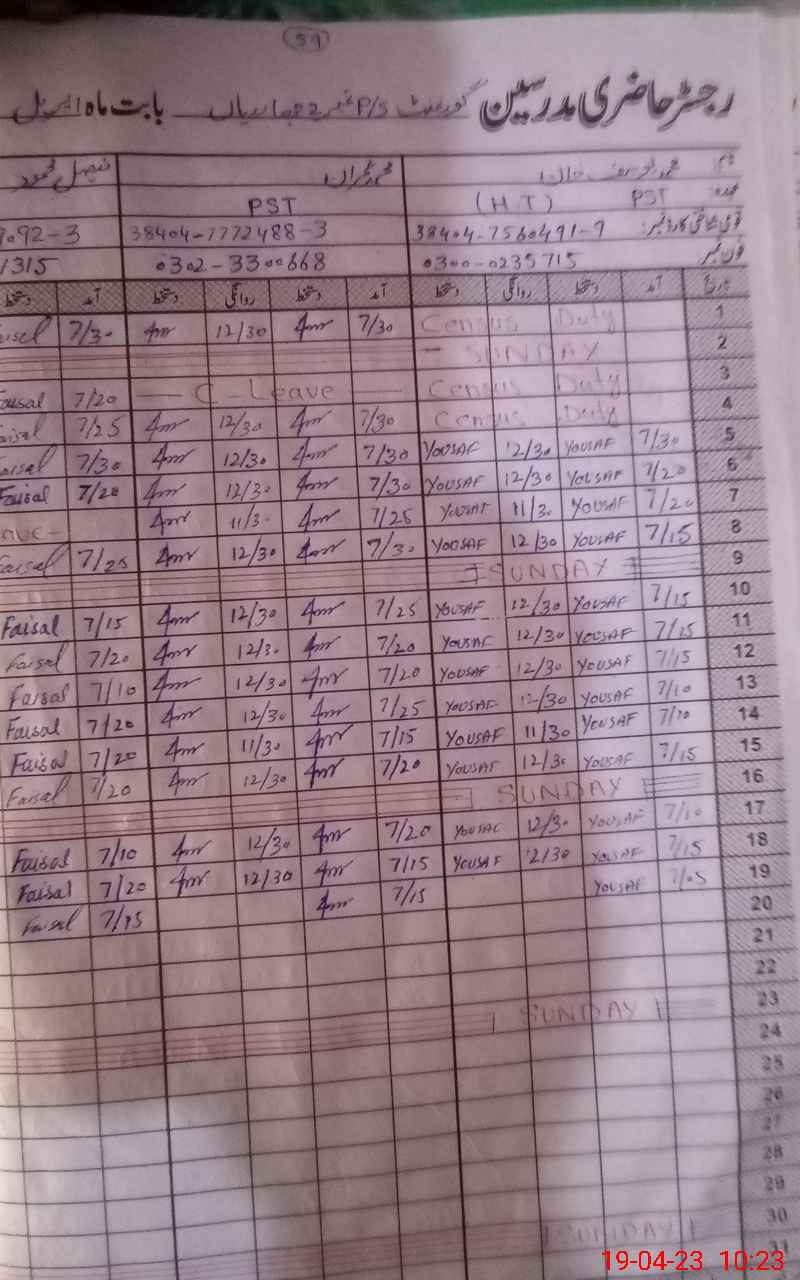 59
رجسٹر حاضری مدرسین گورنمنٹ P/S نمبر 2 جھاوریاں بابت ماہ اپریل
نام: محمد یوسف خان محمد عمران فیصل محمود
عہدہ: PST (H.T) PST
قومی شناختی کارڈ نمبر: 38404-7560491-7 38404-7772488-3 092-3
فون نمبر 0300-0235715 0302-3300668 1315
تاریخ آمد دستخط روانگی دستخط آمد دستخط روانگی دستخط آمد دستخط
1 Census Duty 7/30 12/30 7/30
2 SUNDAY
3 Census Duty C-Leave 7/20 Faisal
4 Census Duty 7/30 12/30 7/25 Faisal
5 7/30 YOUSAF 12/30 YOUSAF 7/30 12/30 7/30 Faisal
6 7/20 YOUSAF 12/30 YOUSAF 7/30 12/30 7/20 Faisal
7 7/20 YOUSAF 11/30 YOUSAF 7/25 11/30
8 7/15 YOUSAF 12/30 YOUSAF 7/30 12/30 7/25 Faisal
9 SUNDAY
10 7/15 YOUSAF 12/30 YOUSAF 7/25 12/30 7/15 Faisal
11 7/15 YOUSAF 12/30 YOUSAF 7/20 12/30 7/20 Faisal
12 7/15 YOUSAF 12/30 YOUSAF 7/20 12/30 7/10 Faisal
13 7/10 YOUSAF 12/30 YOUSAF 7/25 12/30 7/20 Faisal
14 7/10 YOUSAF 11/30 YOUSAF 7/15 11/30 7/20 Faisal
15 7/15 YOUSAF 12/30 YOUSAF 7/20 12/30 7/20 Faisal
16 SUNDAY
17 7/10 YOUSAF 12/30 YOUSAF 7/20 12/30 7/10 Faisal
18 7/15 YOUSAF 12/30 YOUSAF 7/15 12/30 7/20 Faisal
19 7/05 YOUSAF 7/15 Faisal
20
21
22
23 SUNDAY
24
25
26
27
28
29
30 SUNDAY
31
19-04-23 10:23